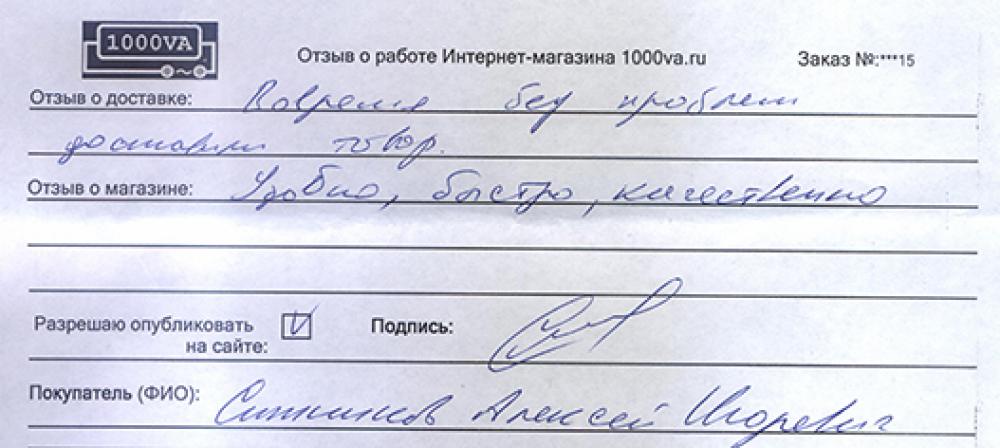 1000VA
Отзыв о работе Интернет-магазина 1000va.ru
Заказ №:***15
Отзыв о доставке: Вовремя без проблем
доставили товар.
Отзыв о магазине: Удобно, быстро, качественно
Разрешаю опубликовать
на сайте:
Подпись:
Покупатель (ФИО): Ситников Алексей Игоревич